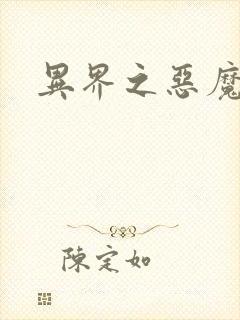 異界之惡魔
陳定如